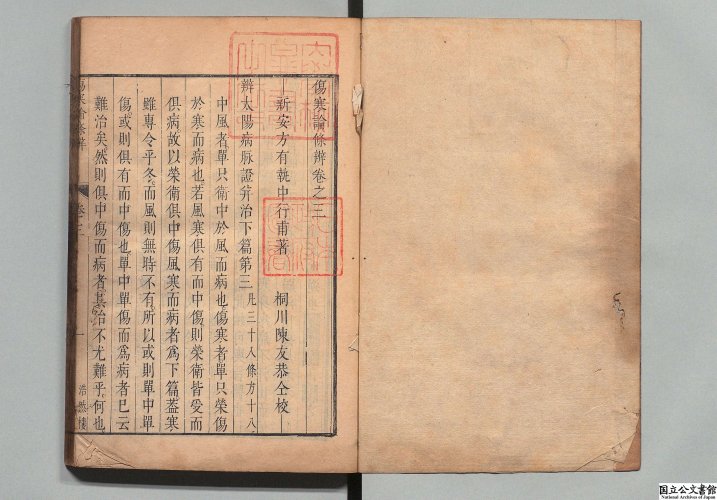 傷寒論條辯卷之三
新安方有執中行甫著　桐川陳友恭仝校
辯太陽病脉證并治下篇第三 凡三十八條方十八
中風者單只衛中於風而病也傷寒者單只榮傷
於寒而病也若風寒俱有而中傷則榮衛皆受而
俱病故以榮衛俱中傷風寒而病者爲下篇蓋寒
雖專令乎冬而風則無時不有所以或則單中單
傷或則俱有而中傷也單中單傷而爲病者已云
難治矣然則俱中傷而病者其治不尤難乎何也
卷三
一
浩然樓
国立公文書館
National Archives of Japan